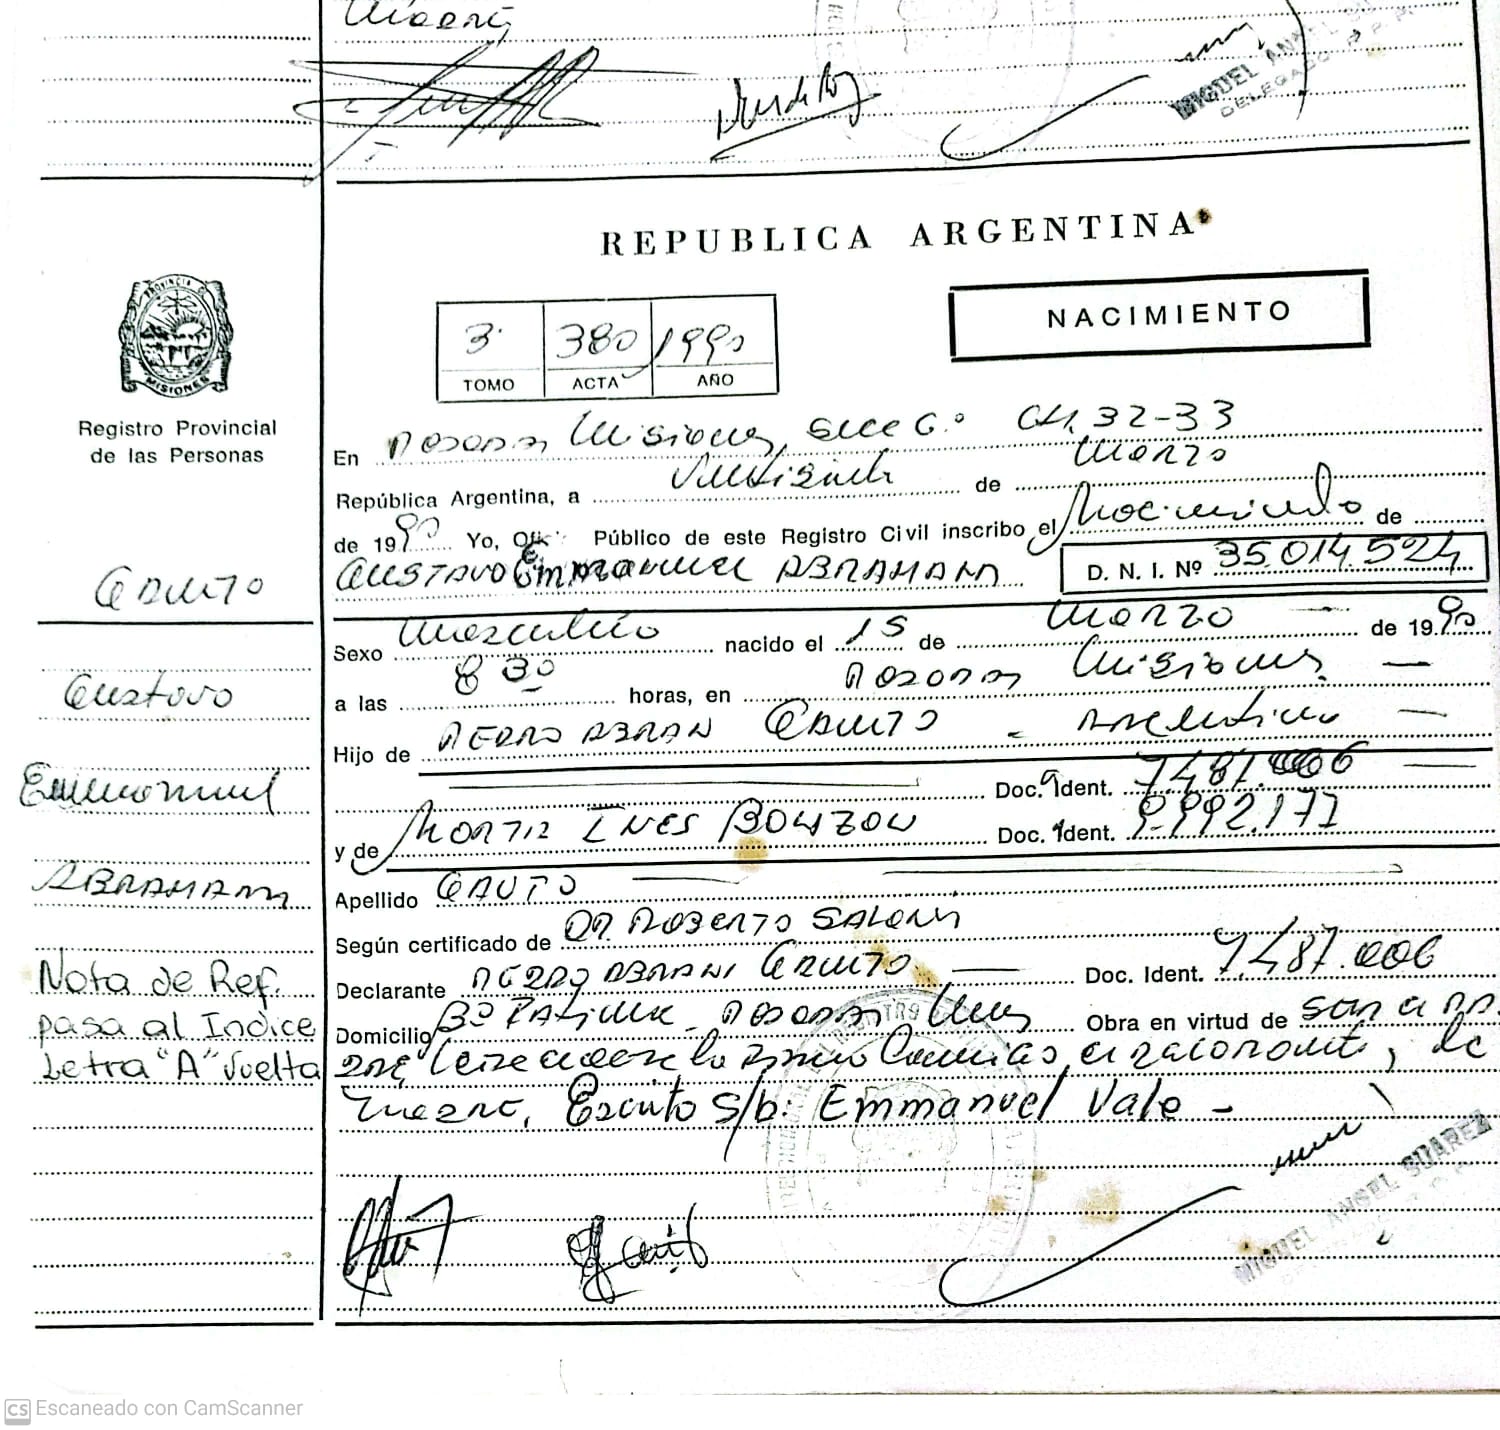 MIGUEL ANGEL
DELEGADO R.P.P.
REPUBLICA ARGENTINA
NACIMIENTO
3 380 1990
TOMO ACTA AÑO
PROVINCIA DE
MISIONES
Registro Provincial
de las Personas
En Posadas Misiones, CH. 32-33
República Argentina, a de Marzo
de 1990 Yo, Público de este Registro Civil inscribo el Nacimiento de
GUSTAVO Emmanuel ABRAHAM D. N. I. Nº 35.014.524
Gauto
Sexo Masculino nacido el 15 de Marzo de 1990
Gustavo
a las 8 30 horas, en Posadas Misiones
Hijo de PEDRO ABRAN GAUTO - Argentino
Emmanuel
Doc. Ident. 7487.006
y de MARTA INES Doc. Ident. 9.992.177
ABRAHAM
Apellido GAUTO
Según certificado de DR. ROBERTO
Declarante PEDRO ABRAN GAUTO Doc. Ident. 7487.006
Nota de Ref.
pasa al Indice
Letra "A" vuelta
Domicilio Bº Posadas Mnes Obra en virtud de
de
Escrito s/b: Emmanuel Vale -
MIGUEL ANGEL SUAREZ
CS Escaneado con CamScanner